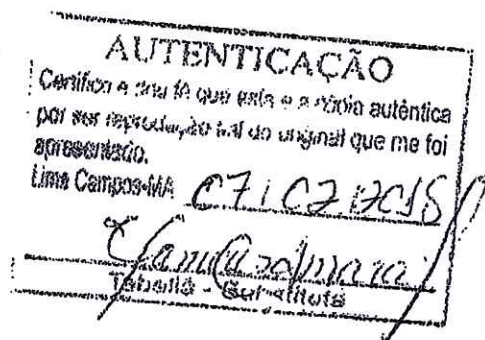 AUTENTICAÇÃO
Certifico e dou fé que esta e a cópia autêntica
por ser reprodução fiel do original que me foi
apresentado.
Lima Campos-MA 07/02/2018
Tabeliã - Substituta